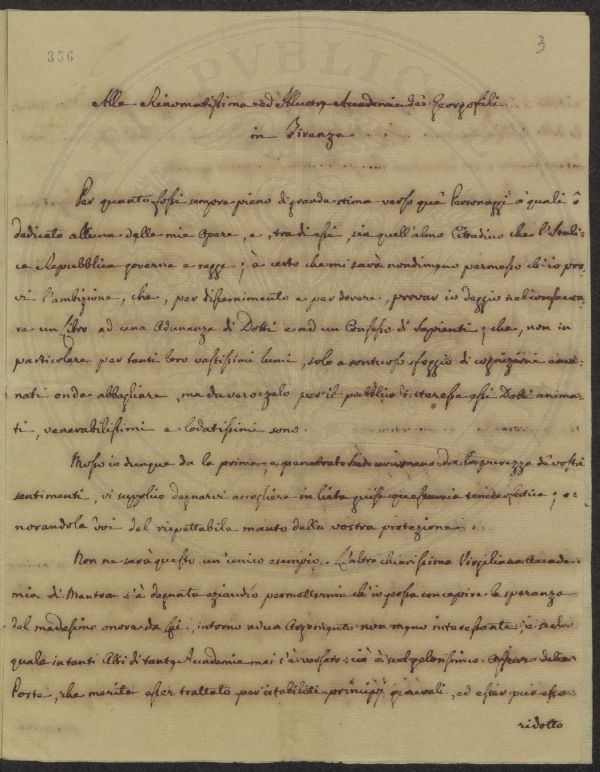 356
3
Alla Rinomatissima ed Illustre Accademia de' Georgofili
in Firenze
Per quanto fossi sempre pieno di grande stima verso que' Personaggi a' quali ò
dedicato alcuna delle mie Opere, e, tra di essi, sia quell'almo Cittadino che l'Itali-
ca Repubblica governa e regge; è certo che mi sarà nondimeno permesso ch'io pro-
vi l'ambizione, che, per discernimento e per dovere, provar io deggio nel consecra-
re un Libro ad una Adunanza di Dotti e ad un Consesso di Sapienti; che, non in
particolare per tanti loro vastissimi lumi, solo a sontuoso sfoggio di cognizioni
nati onde abbagliare, ma da vero zelo per il pubblico interesse essi Dotti anima-
ti, venerabilissimi e lodatissimi sono.
Mosso io dunque da la prima, e penetrato da la purezza de' vostri
sentimenti, vi supplico degnarvi accogliere in lieta guisa questa mia fatica; o-
norandola Voi del rispettabile manto della vostra protezione.
Non ne sarà questo un unico esempio. L'altra chiarissima Virgiliana Accade-
mia di Mantoa s'è degnata eziandio permettermi ch'io possa concepire la speranza
del medesimo onore da Lei, intorno ad un Argomento non meno interessante, e sul
quale in tanti Atti di tante Accademie mai s'è versato: ciò è sul gelosissimo Affare delle
Poste, che merita esser trattato per istabiliti principj generali, ed esser pur esso
ridotto